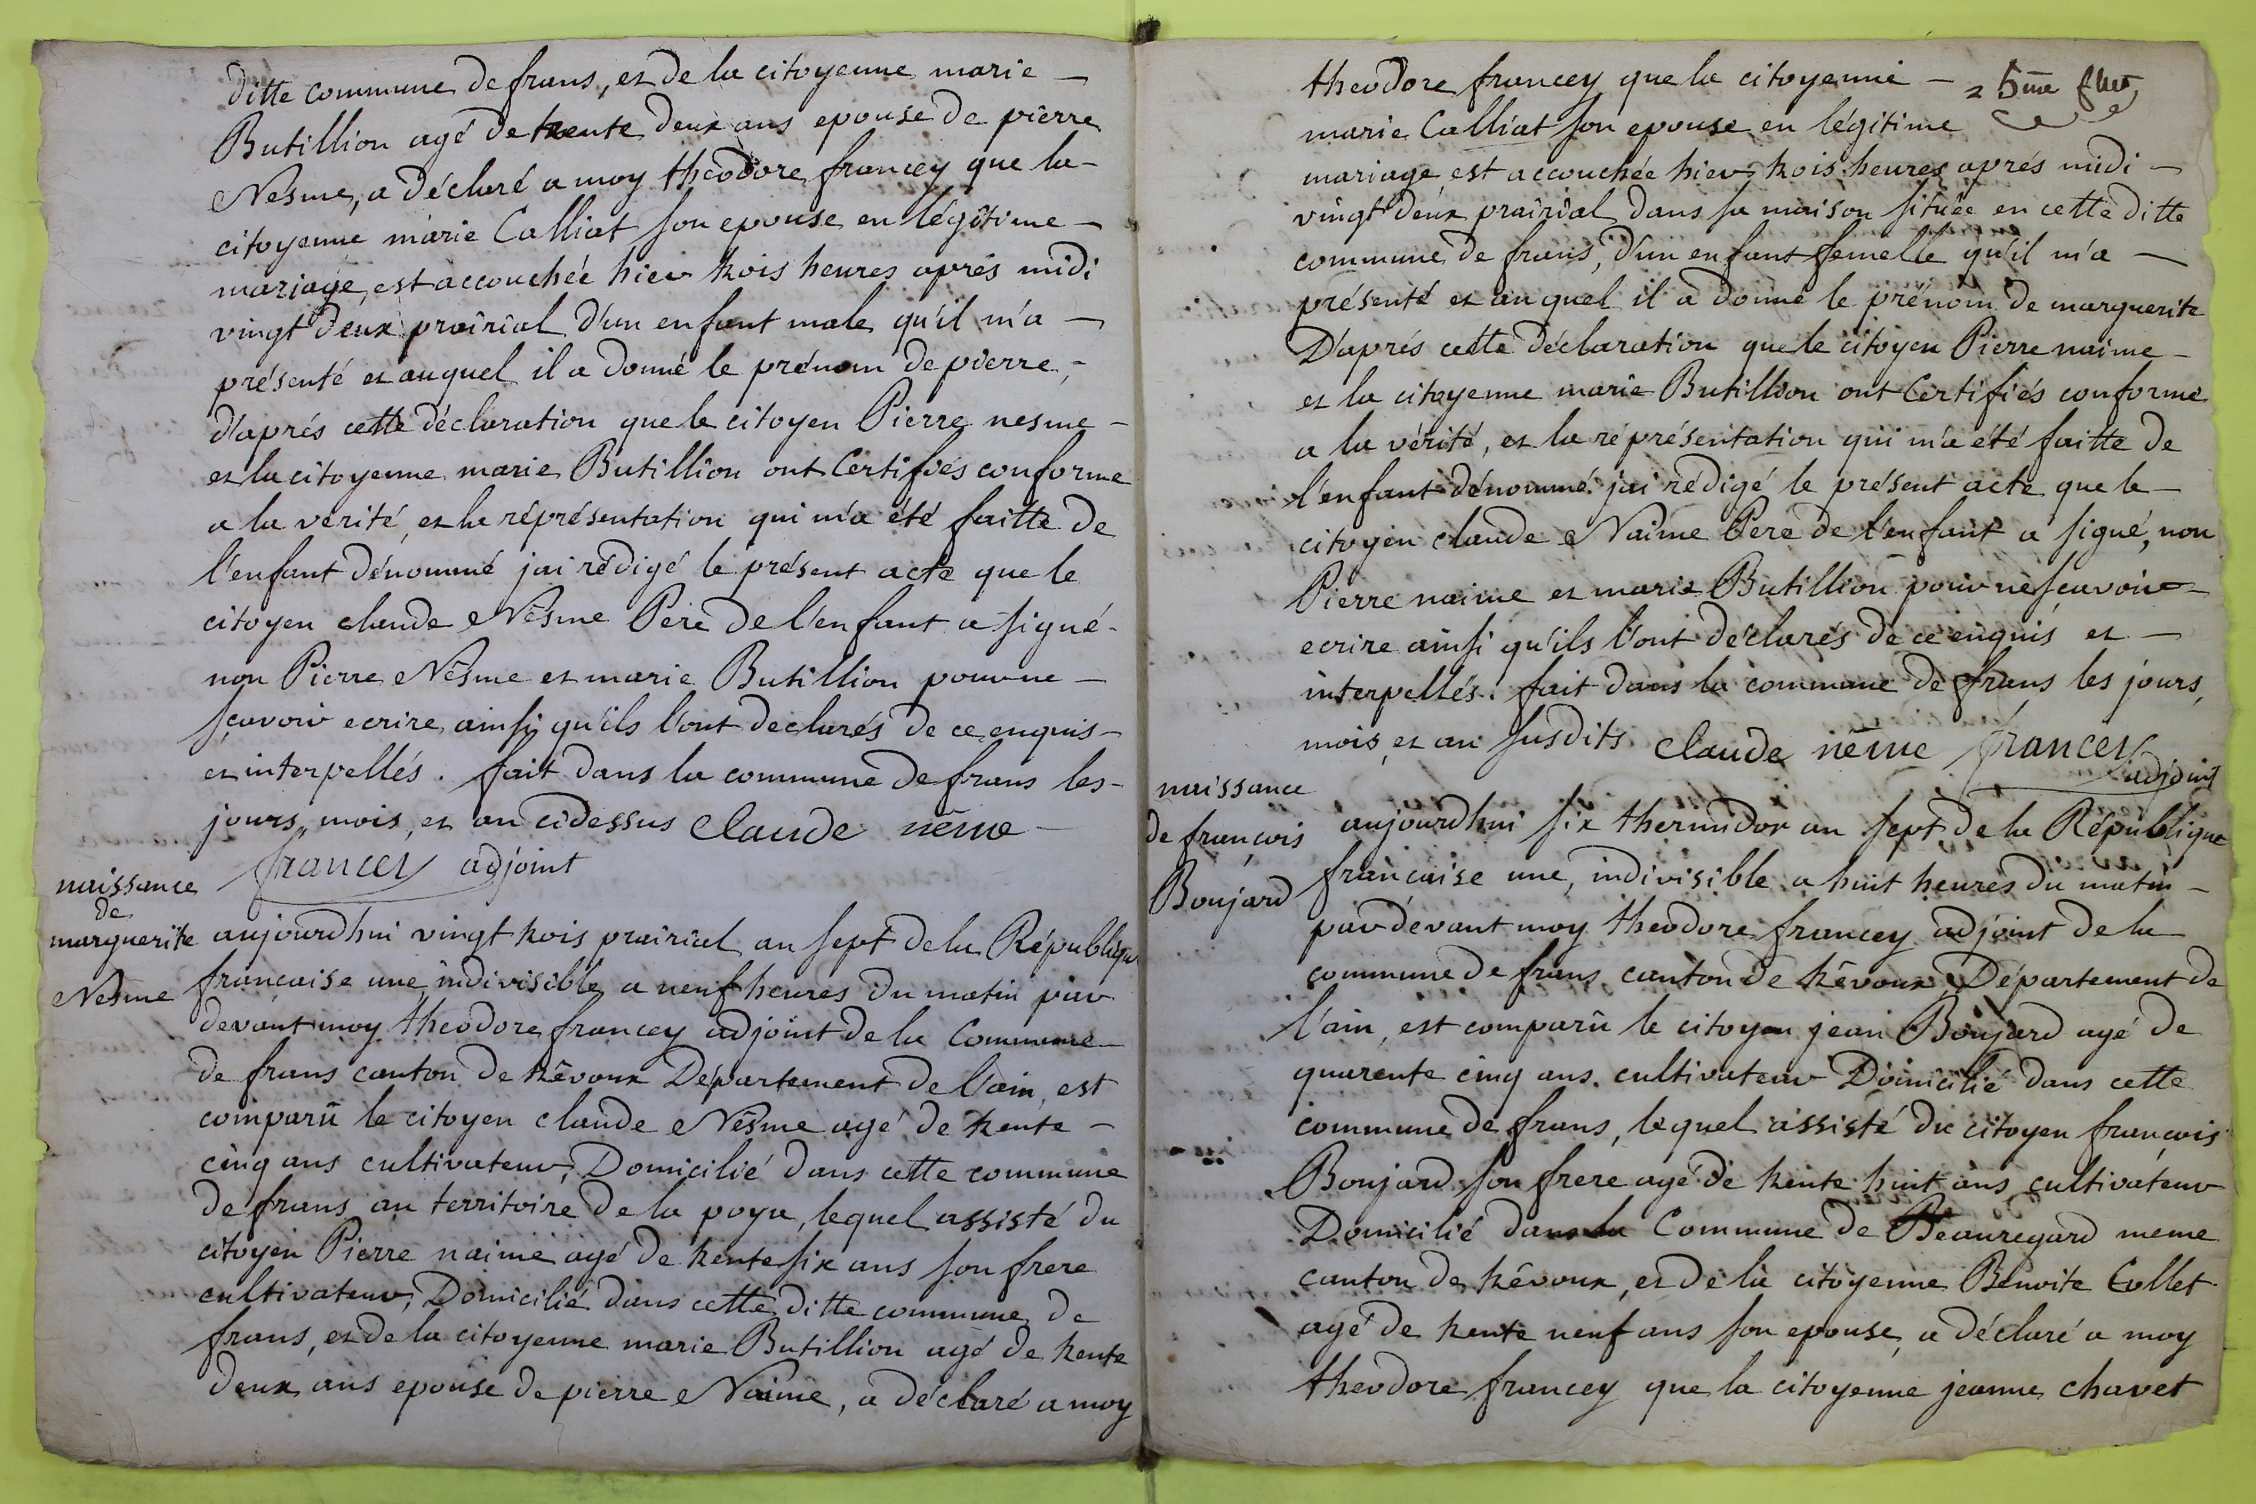 ditte commune de frans, et de la citoyenne marie –
Butillion agé de trente deux ans epouse de pierre
Nesme, a déclaré a moy theodore francey que la –
citoyenne marie Calliat son epouse en légitime –
mariage, est accouchée hier trois heures aprés midi
vingt deux prairial d'un enfant male qu'il m'a –
présenté et auquel il a donné le prénom de pierre, –
d'aprés cette déclaration que le citoyen Pierre nesme –
et la citoyenne marie Butillion ont Certifiés conforme
a la vérité, et la réprésentation qui m'a été faitte de
l'enfant dénommé jai rédigé le présent acte que le
citoyen claude Nesme Pere de l'enfant a signé –
non Pierre Nesme et marie Butillion pour ne –
sçavoir ecrire ainsi qu'ils l'ont declarés de ce enquis –
et interpellés. fait dans la commune de frans les –
jours, mois, et an cidessus Claude néme –
francey adjoint
naissance
de
marguerite
Nesme
aujourdhui vingt trois prairial an sept de la Républiqu
francaise une, indivisible, a neuf heures du matin par
devant moy theodore francey adjoint de la Commune –
de frans canton de trévoux Département de l'ain, est
comparû le citoyen claude Nesme agé de trente –
cinq ans cultivateur, Domicilié dans cette commune
de frans au territoire de la poya, lequel assisté du
citoyen Pierre naime agé de trente six ans son frere
cultivateur, Domicilié dans cette ditte commune de
frans, et de la citoyenne marie Butillion agé de trente
deux ans epouse de pierre Naime, a déclaré a moy
theodore francey que la citoyenne – 5me
marie Calliat son epouse en légitime
mariage est accouchée hier trois heures aprés midi –
vingt deux prairial dans sa maison située en cette ditte
commune de frans, d'un enfant femelle qu'il m'a –
présenté et auquel il a donné le prénom de marguerite
D'aprés cette déclaration que le citoyen Pierre naime –
et la citoyenne marie Butillion ont Certifiés conforme
a la vérité, et la réprésentation qui m'a été faitte de
l'enfant dénommé jai rédigé le présent acte que le –
citoyen claude Naime Pere de l'enfant a signé, non
Pierre naime et marie Butillion pour ne sçavoir –
ecrire ainsi qu'ils l'ont déclarés de ce enquis et –
interpellés. fait dans la commune de frans les jours,
mois, et an susdits Claude néme francey
adjoint
naissance
de francois
Boujard
aujourdhui six thermidor an sept de la République
francaise une, indivisible a huit heures du matin –
pardevant moy theodore francey adjoint de la
commune de frans canton de trévoux Département de
l'ain, est comparû le citoyen jean Boujard agé de
quarente cinq ans cultivateur Domicilié dans cette
commune de frans, lequel assisté du citoyen francois
Boujard son frere agé de trente huit ans cultivateur
Domicilié dans la Commune de Beauregard meme
canton de trévoux, et de la citoyenne Benoite Collet
agé de trente neuf ans son epouse, a déclaré a moy
theodore francey que la citoyenne jeanne chavet